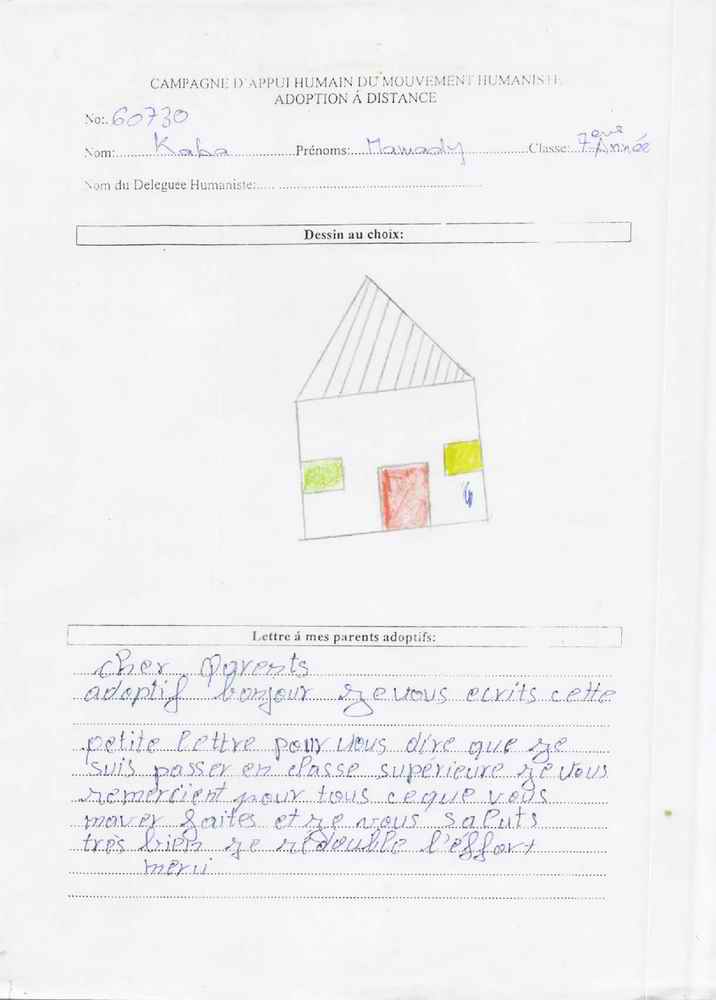 CAMPAGNE D'APPUI HUMAIN DU MOUVEMENT HUMANISTE
ADOPTION Á DISTANCE
No:. 60730
Nom: Kaba Prénoms: Mamady Classe: 7ème Année
Nom du Deleguee Humaniste:
Dessin au choix:
Lettre á mes parents adoptifs:
cher parents
adoptif bonjour je vous ecrits cette
petite lettre pour vous dire que je
suis passer en classe supérieure je vous
remercient pour tous ce que vous
maver faites et je vous saluts
très bien je rédouble l'effort
merci